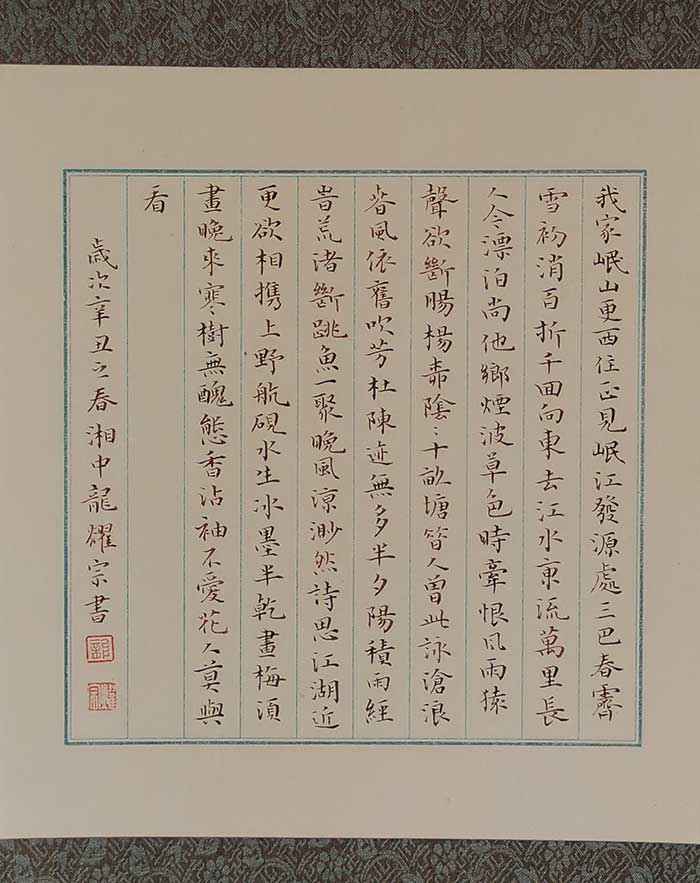 我家岷山更西住正見岷江發源處三巴春霽
雪初消百折千回向東去江水東流萬里長
人今漂泊尚他鄉煙波草色時牽恨風雨猿
聲欲斷腸楊柳陰〻十畝塘昔人曾此詠滄浪
春風依舊吹芳杜陳迹無多半夕陽積雨經
旹荒渚斷跳魚一聚晚風涼渺然詩思江湖近
更欲相携上野航硯水生冰墨半乾畫梅須
畫晚來寒樹無醜態香沾袖不愛花人莫與
看
歲次辛丑之春湘中龍燿宗書